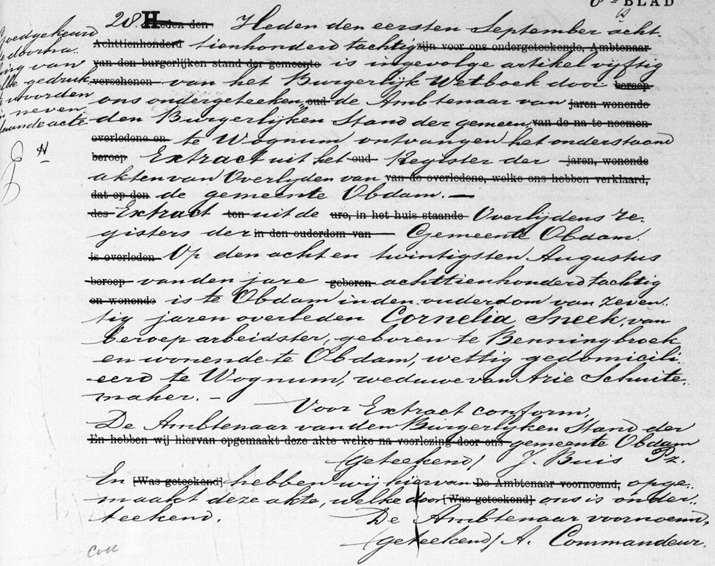 BLAD
28 Heden den Heden den eersten September acht-
Achttienhonderd tienhonderd tachtig zijn voor ons ondergeteekende, Ambtenaar
van den burgerlijken stand der gemeente is ingevolge artikel vijftig
verschenen van het Burgerlijk Wetboek door beroep
ons ondergeteeken, oud de Ambtenaar van jaren wonende
den Burgerlijken Stand der gemeen, van de na te noemen
overledene en te Wognum ontvangen het onderstaand
beroep Extract uit het oud Register der jaren, wonende
akten van Overlyden van van de overledene, welke ons hebben verklaard,
dat op den de gemeente Obdam. —
des Extract ten uit de ure, in het huis staande Overlijdens re-
gisters der in den ouderdom van — Gemeente Obdam.
is overleden Op den acht en twintigsten Augustus
beroep van den jare geboren achttienhonderd tachtig
en wonende is te Obdam in den ouderdom van zeven-
tig jaren overleden Cornelia Sneek, van
beroep arbeidster, geboren te Benningbroek
en wonende te Obdam, wettig gedomicili-
eerd te Wognum, weduwe van Arie Schuite-
maker. —
Voor Extract conform,
De Ambtenaar van den Burgerlijken Stand der
En hebben wij hiervan opgemaakt deze akte welke na voorlezing door ons gemeente Obdam
(geteekend) J. Buis Pz.
En [Was geteekend] hebben wij hiervan De Ambtenaar voornoemd, opge-
maakt deze akte, welke door [Was geteekend] ons is onder-
teekend. De Ambtenaar voornoemd,
(geteekend) A. Commandeur.
Goedgekeurd
de doorha-
ling van
alle gedruk-
te woorden
in neven-
staande acte